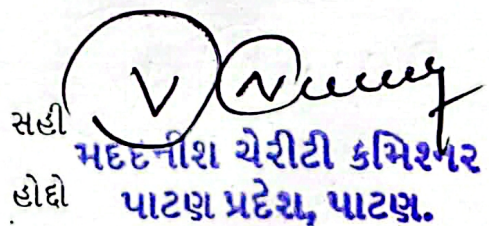 સહી
મદદનીશ ચેરીટી કમિશ્નર
હોદ્દો પાટણ પ્રદેશ, પાટણ.